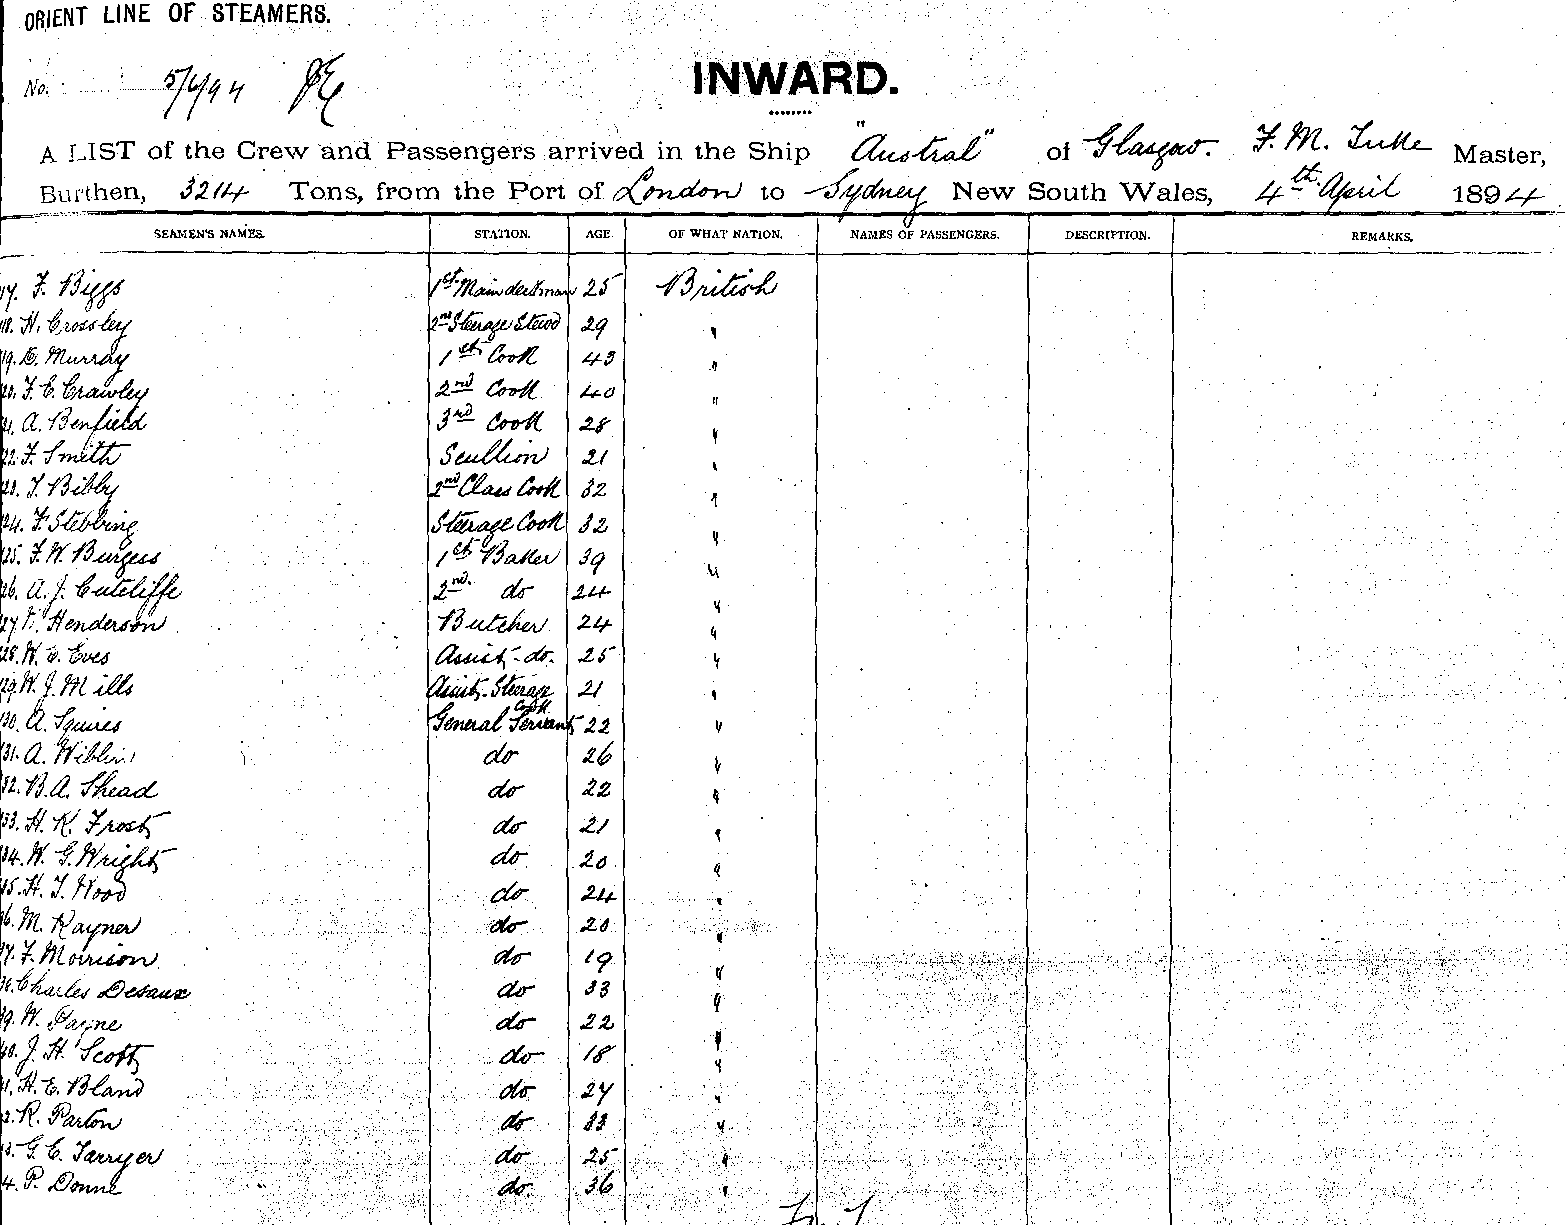 ORIENT LINE OF STEAMERS.
No. 5/4/94
INWARD.
A LIST of the Crew and Passengers arrived in the Ship "Austral" of Glasgow. F. M. Tuke Master,
Burthen, 3214 Tons, from the Port of London to Sydney New South Wales, 4th April 1894
SEAMEN'S NAMES. STATION. AGE OF WHAT NATION. NAMES OF PASSENGERS. DESCRIPTION. REMARKS.
17. F. Biggs 1st Maindeckman 25 British
18. H. Crossley 2nd Steerage Stewd 29 "
19. E. Murray 1st Cook 43 "
20. F. C. Crawley 2nd Cook 40 "
21. A. Benfield 3rd Cook 28 "
22. F. Smith Scullion 21 "
23. T. Bibby 2nd Class Cook 32 "
24. F. Stebbing Steerage Cook 32 "
125. F. W. Burgess 1st Baker 39 "
126. A. J. Cutcliffe 2nd do 24 "
127. Henderson Butcher 24 "
128. W. E. Eves Assist. do. 25 "
129. W. J. Mills Assist. Steerage Cook 21 "
130. A. Squires General Servant 22 "
131. A. Wiblin do 26 "
132. B. A. Shead do 22 "
133. H. K. Frost do 21 "
134. W. G. Wright do 20 "
35. H. T. Wood do 24 "
36. M. Rayner do 20 "
37. F. Morrison do 19 "
38. Charles Desaux do 33 "
39. W. Payne do 22 "
40. J. H. Scott do 18 "
41. H. E. Bland do 27 "
2. R. Parton do 33 "
3. G. E. Tarryer do 25 "
4. P. Donne do. 36 "